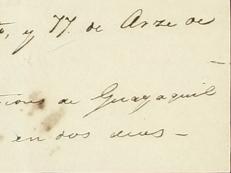 y 77. de Arze de
de Guayaquil
en dos dias —